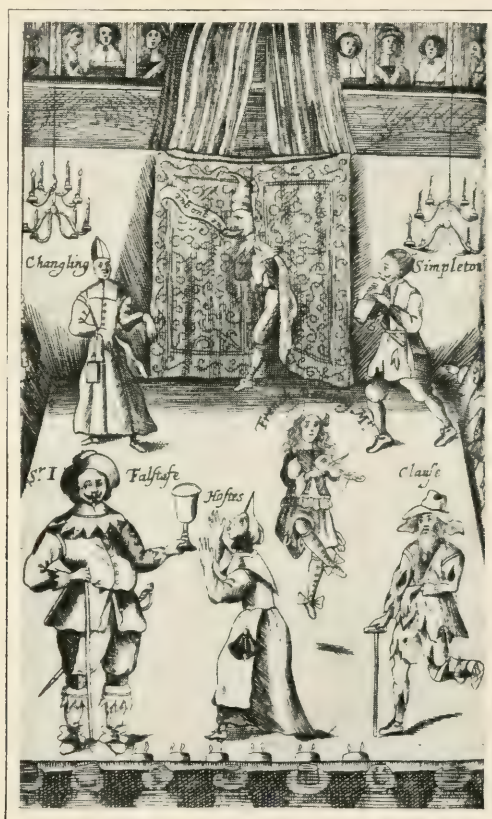 Changling
Simpleton
Sr. I Falstafe
Hostes
Clause